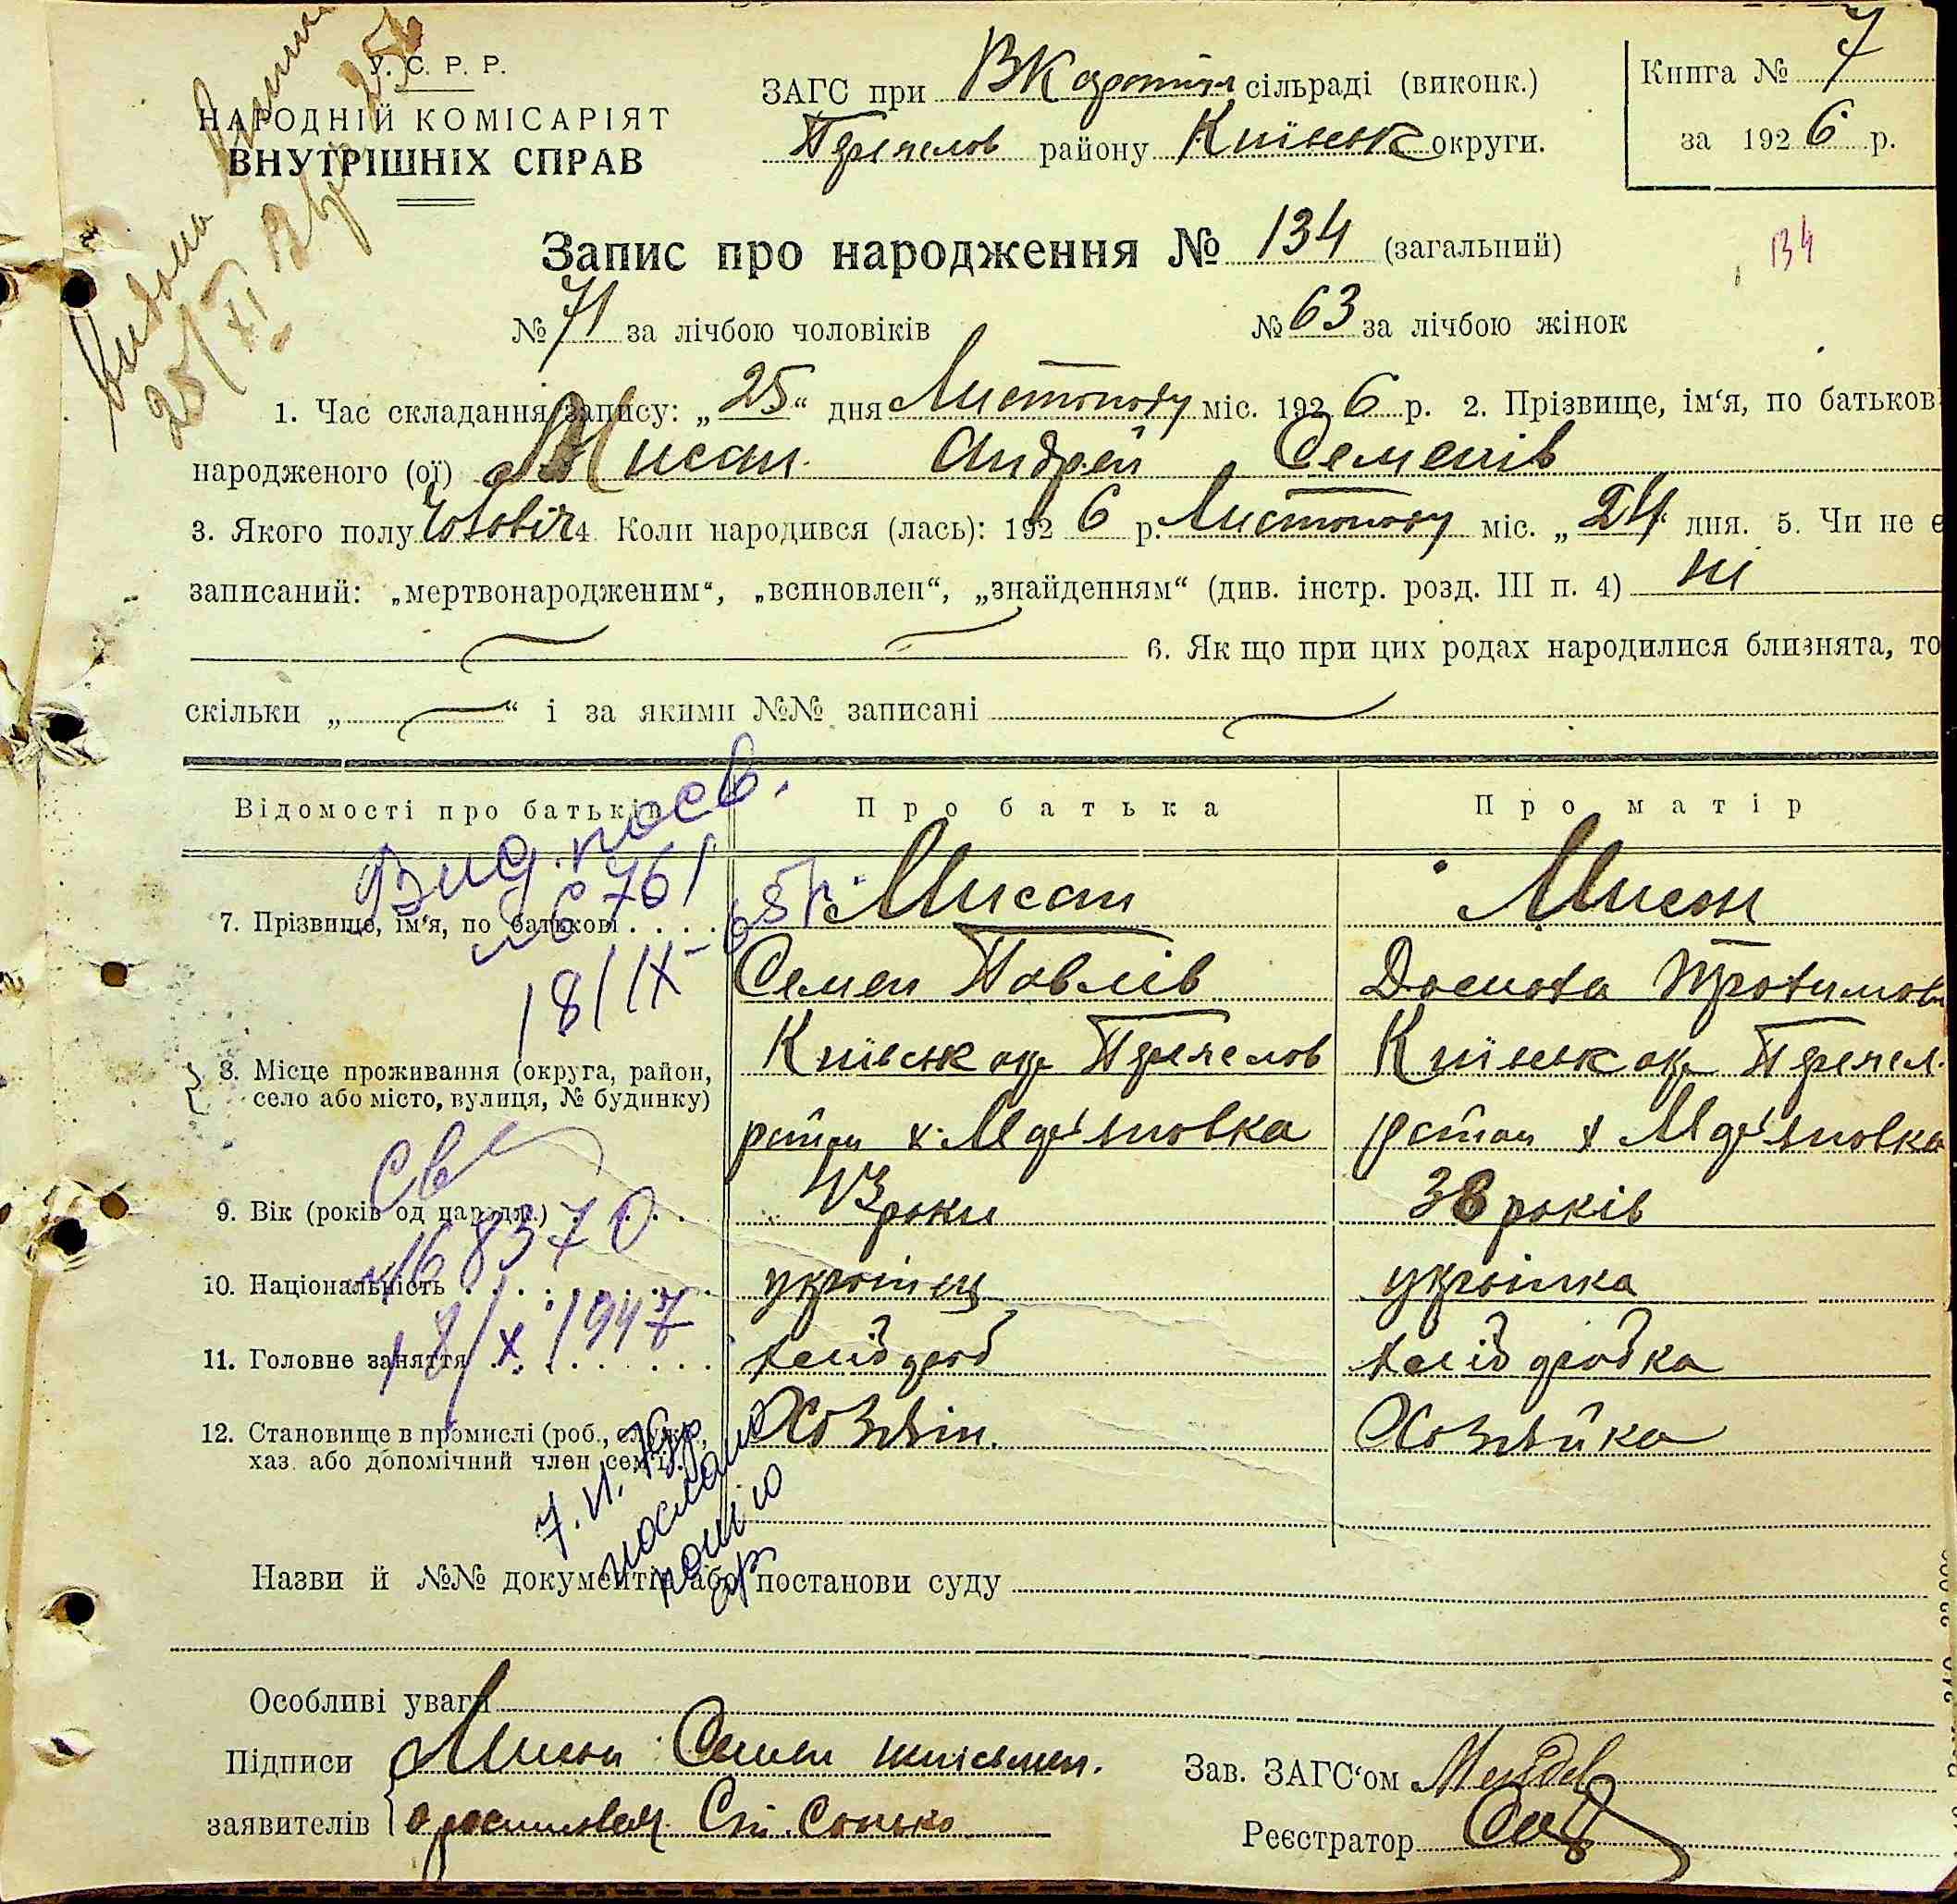 У. С. Р. Р.
НАРОДНІЙ КОМІСАРІЯТ
ВНУТРІШНІХ СПРАВ
ЗАГС при ВКаратул сільраді (виконк.)
Переяслов району Київськ округи.
Книга № 7
за 1926 р.
Запис про народження № 134 (загальний)
134
№ 71 за лічбою чоловіків № 63 за лічбою жінок
1. Час складання запису: „25“ дня Листопаду міс. 1926 р. 2. Прізвище, ім‘я, по батьков
народженого (ої) Мисан Андрей Семенів
3. Якого полу Чоловіч 4. Коли народився (лась): 1926 р. Листопаду міс. „24“ дня. 5. Чи не є
записаний: „мертвонародженим“, „всиновлен“, „знайденням“ (див. інстр. розд. III п. 4) ні
6. Як що при цих родах народилися близнята, то
скільки „ “ і за якими №№ записані
Відомості про батьків Про батька Про матір
Вид. посв.
№ 761
18/IX-65р.
7. Прізвище, ім‘я, по батькові Мисан Мисан
Семен Павлів Трохимов
8. Місце проживання (округа, район,
село або місто, вулиця, № будинку)
Київськ окр Переяслов Київськ окр Переясл.
район х. район х
9. Вік (років од народж.) 43 роки 38 років
10. Національність українець українка
11. Головне заняття хлібороб хліборобка
12. Становище в промислі (роб., служ.,
хаз. або допомічний член сем‘ї) Хозяїн. Хозяйка
Св
№ 68370
18/X 1947
Назви й №№ документів або постанови суду
Особливі уваги
Підписи Мисан Семен
заявителів
Зав. ЗАГС‘ом
Реєстратор